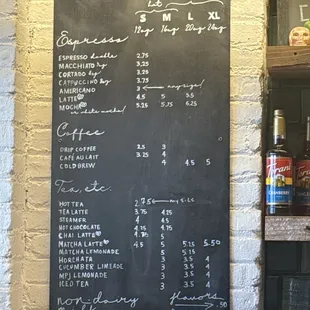 hot
S M L XL
12oz 16oz 20oz 24oz
Espresso
ESPRESSO double 2.75
MACCHIATO 3.25
CORTADO 3.25
CAPPUCCINO 3.75
AMERICANO 3 any size!
LATTE 4.5 5 5.5
MOCHA 5.25 5.75 6.25
or white mocha!
Coffee
DRIP COFFEE 2.5 3
CAFÉ AU LAIT 3.25 4
COLD BREW 4 4.5 5
Tea, etc.
HOT TEA 2.75 any size
TEA LATTE 3.75 4.25
STEAMER 4 4.5
HOT CHOCOLATE 4.25 4.75
CHAI LATTE 4.75 5
MATCHA LATTE 4.5 5 5.25 5.50
MATCHA LEMONADE 5 5.5
HORCHATA 3 3.5 4
CUCUMBER LIMEADE 3 3.5 4
MPJ LEMONADE 3 3.5 4
ICED TEA 3 3.5 4
non-dairy flavors .50
Torani
CRANBERRY